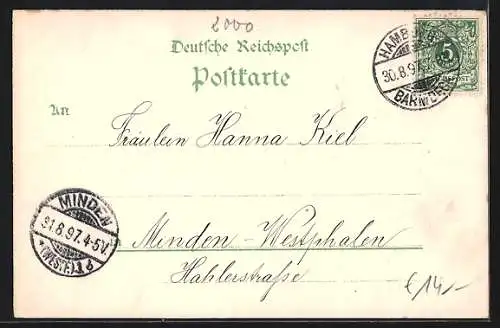 2000
Deutsche Reichspost
Postkarte
An
Fräulein Hanna Kiel
Minden-Westphalen
Hahlerstraße
HAMBURG
30.8.97
BARMBECK
5
MINDEN
31.8.97.4-5V.
*(WESTF.)1d
€14,-